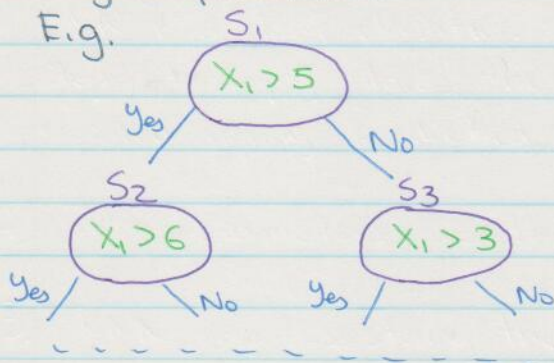 E.g.
S1
X1 > 5
Yes No
S2 S3
X1 > 6 X1 > 3
Yes No Yes No